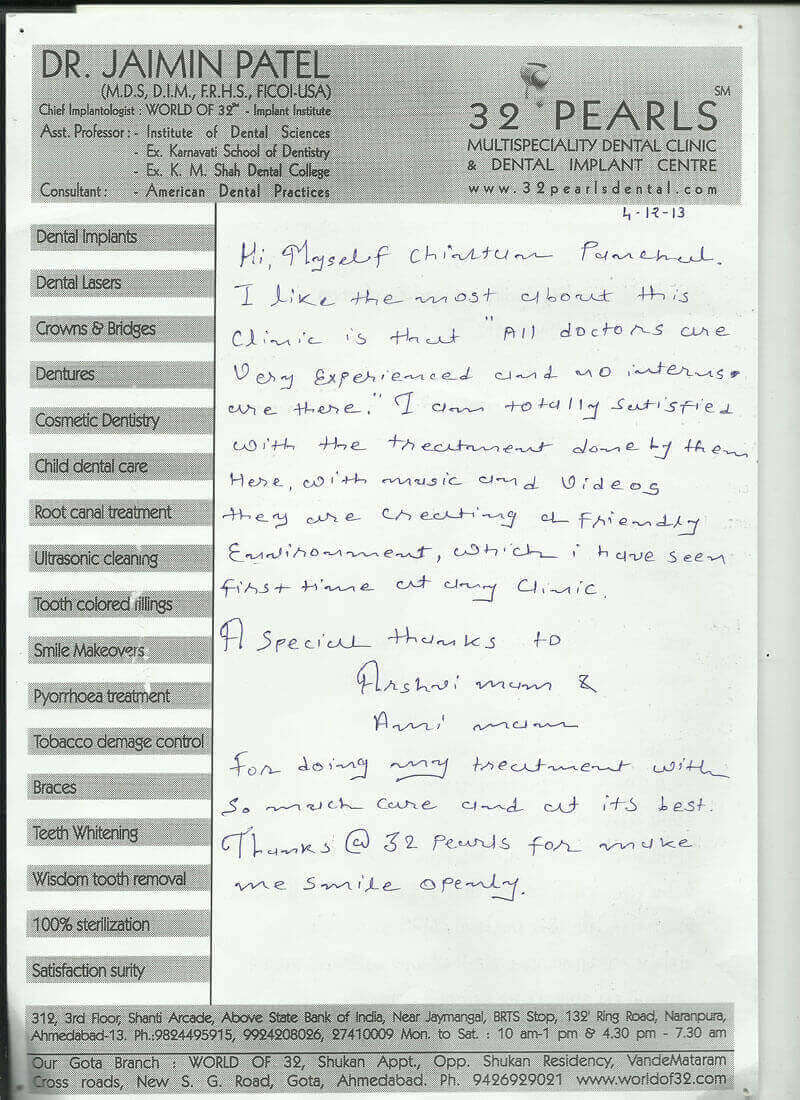 DR. JAIMIN PATEL
(M.D.S, D.I.M., F.R.H.S., FICOI-USA)
Chief Implantologist : WORLD OF 32™ - Implant Institute
Asst. Professor : - Institute of Dental Sciences
- Ex. Karnavati School of Dentistry
- Ex. K. M. Shah Dental College
Consultant : - American Dental Practices
32 PEARLS SM
MULTISPECIALITY DENTAL CLINIC
& DENTAL IMPLANT CENTRE
www.32pearlsdental.com
4-12-13
Dental Implants
Dental Lasers
Crowns & Bridges
Dentures
Cosmetic Dentistry
Child dental care
Root canal treatment
Ultrasonic cleaning
Tooth colored fillings
Smile Makeovers
Pyorrhoea treatment
Tobacco demage control
Braces
Teeth Whitening
Wisdom tooth removal
100% sterilization
Satisfaction surity
Hi, Myself Chintan Panchal.
I like the most about this
Clinic is that "All doctors are
Very Experienced and no interns
are there." I am totally satisfied
with the treatment done by them
Here, with music and videos
they are creating a friendly
Environment, which i have seen
first time at any Clinic.
A Special thanks to
Arshvi mam &
Ami mam
for doing my treatment with
so much care and at its best.
Thanks @ 32 Pearls for make
me smile openly.
312, 3rd Floor, Shanti Arcade, Above State Bank of India, Near Jaymangal, BRTS Stop, 132' Ring Road, Naranpura,
Ahmedabad-13. Ph.:9824495915, 9924208026, 27410009 Mon. to Sat. : 10 am-1 pm & 4.30 pm - 7.30 am
Our Gota Branch : WORLD OF 32, Shukan Appt., Opp. Shukan Residency, VandeMataram
Cross roads, New S. G. Road, Gota, Ahmedabad. Ph. 9426929021 www.worldof32.com